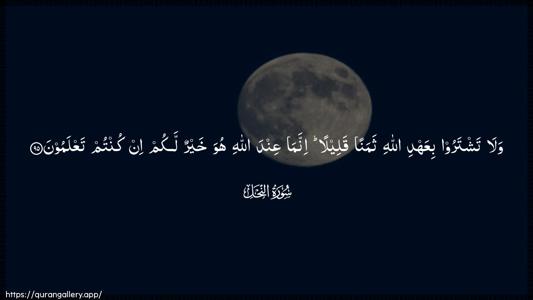 وَلَا تَشْتَرُوْا بِعَهْدِ اللّٰهِ ثَمَنًا قَلِيْلًا ؕ اِنَّمَا عِنْدَ اللّٰهِ هُوَ خَيْرٌ لَّـكُمْ اِنْ كُنْتُمْ تَعْلَمُوْنَ ۝۹۵
سُوْرَةُ النَّحْلِ
https://qurangallery.app/